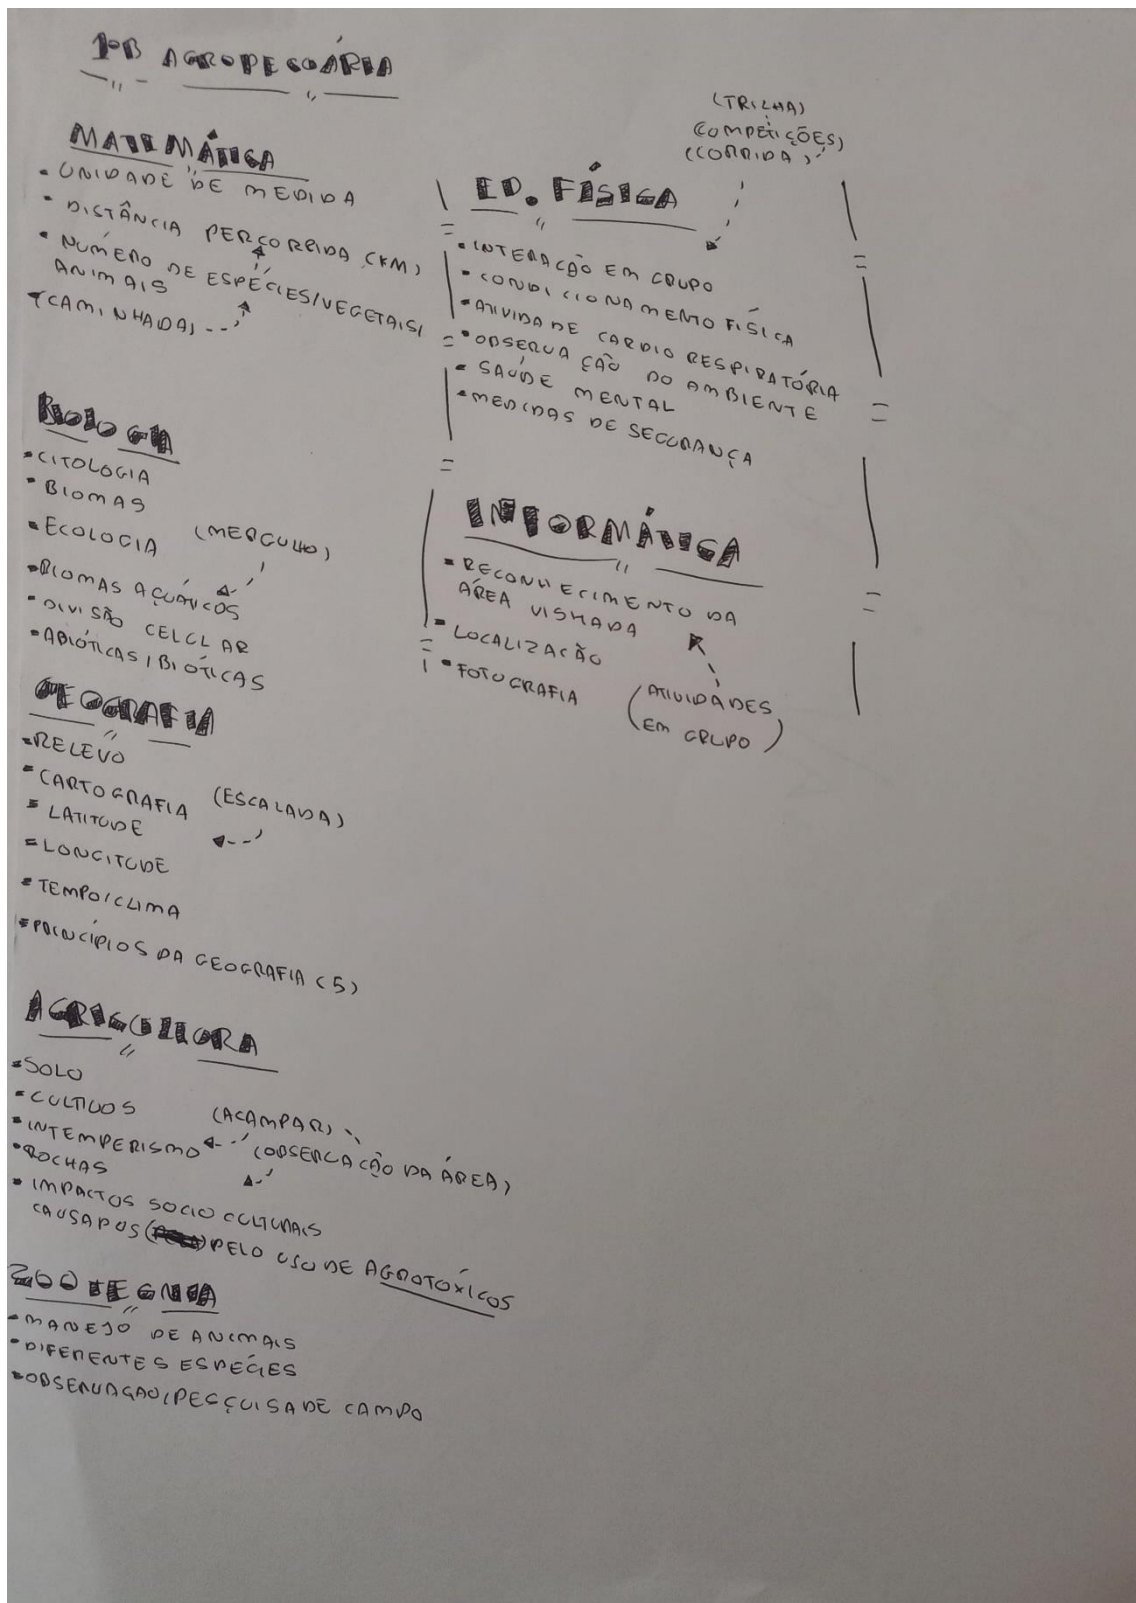 1ºB AGROPECUÁRIA
MATEMÁTICA
• UNIDADE DE MEDIDA
• DISTÂNCIA PERCORRIDA (KM)
• NÚMERO DE ESPÉCIES/VEGETAIS/
ANIMAIS
(CAMINHADA)
BIOLOGIA
• CITOLOGIA
• BIOMAS
• ECOLOGIA (MERGULHO)
• BIOMAS AQUÁTICOS
• DIVISÃO CELULAR
• ABIÓTICAS/BIÓTICAS
GEOGRAFIA
• RELEVO
• CARTOGRAFIA (ESCALADA)
• LATITUDE
• LONGITUDE
• TEMPO/CLIMA
• PRINCÍPIOS DA GEOGRAFIA (5)
AGRICULTURA
• SOLO
• CULTIVOS (ACAMPAR)
• INTEMPERISMO (OBSERVAÇÃO DA ÁREA)
• ROCHAS
• IMPACTOS SOCIO CULTURAIS
CAUSADOS PELO USO DE AGROTOXICOS
ZOOTECNIA
• MANEJO DE ANIMAIS
• DIFERENTES ESPÉCIES
• OBSERVAÇAO/PESQUISA DE CAMPO
(TRILHA)
(COMPETIÇÕES)
(CORRIDA)
ED. FÍSICA
• INTERAÇÃO EM GRUPO
• CONDICIONAMENTO FÍSICA
• ATIVIDADE CARDIO RESPIRATÓRIA
• OBSERVAÇÃO DO AMBIENTE
• SAÚDE MENTAL
• MEDIDAS DE SEGURANÇA
INFORMÁTICA
• RECONHECIMENTO DA
ÁREA VISITADA
• LOCALIZAÇÃO
• FOTOGRAFIA
(ATIVIDADES
EM GRUPO)